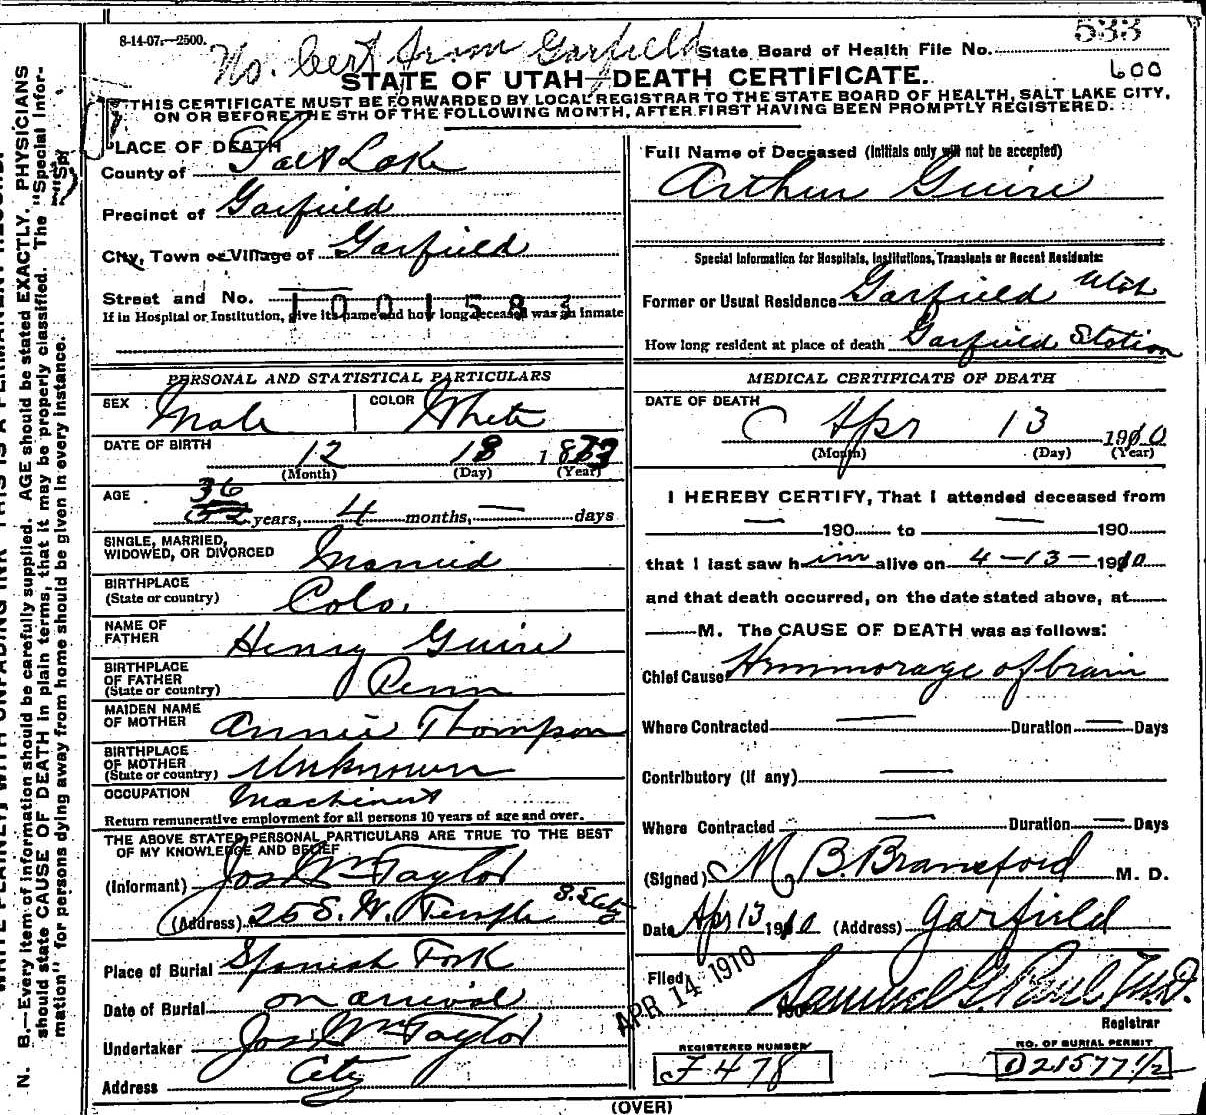 8-14-07.—2500.
No. Cert from Garfield
State Board of Health File No. 533
STATE OF UTAH—DEATH CERTIFICATE. 600
THIS CERTIFICATE MUST BE FORWARDED BY LOCAL REGISTRAR TO THE STATE BOARD OF HEALTH, SALT LAKE CITY,
ON OR BEFORE THE 5TH OF THE FOLLOWING MONTH, AFTER FIRST HAVING BEEN PROMPTLY REGISTERED.
PLACE OF DEATH
County of Salt Lake
Precinct of Garfield
City, Town or Village of Garfield
Street and No. 1001583
If in Hospital or Institution, give its name and how long deceased was an inmate
PERSONAL AND STATISTICAL PARTICULARS
SEX Male COLOR White
DATE OF BIRTH 12 18 18
(Month) (Day) (Year)
36
AGE 52 years, 4 months, — days
SINGLE, MARRIED,
WIDOWED, OR DIVORCED Married
BIRTHPLACE
(State or country) Colo.
NAME OF
FATHER Henry Guire
BIRTHPLACE
OF FATHER
(State or country) Penn
MAIDEN NAME
OF MOTHER Annie Thompson
BIRTHPLACE
OF MOTHER
(State or country) Unknown
OCCUPATION Machinist
Return remunerative employment for all persons 10 years of age and over.
THE ABOVE STATED PERSONAL PARTICULARS ARE TRUE TO THE BEST
OF MY KNOWLEDGE AND BELIEF
(Informant) Jos Wm Taylor
(Address) 25 S. W. Temple
Place of Burial Spanish Fork
Date of Burial on arrival
Undertaker Jos Wm Taylor
Address City
Full Name of Deceased (Initials only will not be accepted)
Arthur Guire
Special Information for Hospitals, Institutions, Transients or Recent Residents:
Former or Usual Residence Garfield Utah
How long resident at place of death Garfield Station
MEDICAL CERTIFICATE OF DEATH
DATE OF DEATH
Apr 13 1910
(Month) (Day) (Year)
I HEREBY CERTIFY, That I attended deceased from
— 190 to — 190
that I last saw him alive on 4-13-1910
and that death occurred, on the date stated above, at
M. The CAUSE OF DEATH was as follows:
Chief Cause Hemmorage of brain
Where Contracted — Duration — Days
Contributory (if any) —
Where Contracted — Duration — Days
(Signed) M. B. Bransford M. D.
Date Apr 13 1910 (Address) Garfield
Filed APR 14 1910 190 Samuel G. Paul M.D.
Registrar
REGISTERED NUMBER
F 478
NO. OF BURIAL PERMIT
D21577 1/2
(OVER)
N. B.—Every item of information should be carefully supplied. AGE should be stated EXACTLY. PHYSICIANS
should state CAUSE OF DEATH in plain terms, that it may be properly classified. The "Special Infor-
mation" for persons dying away from home should be given in every instance.